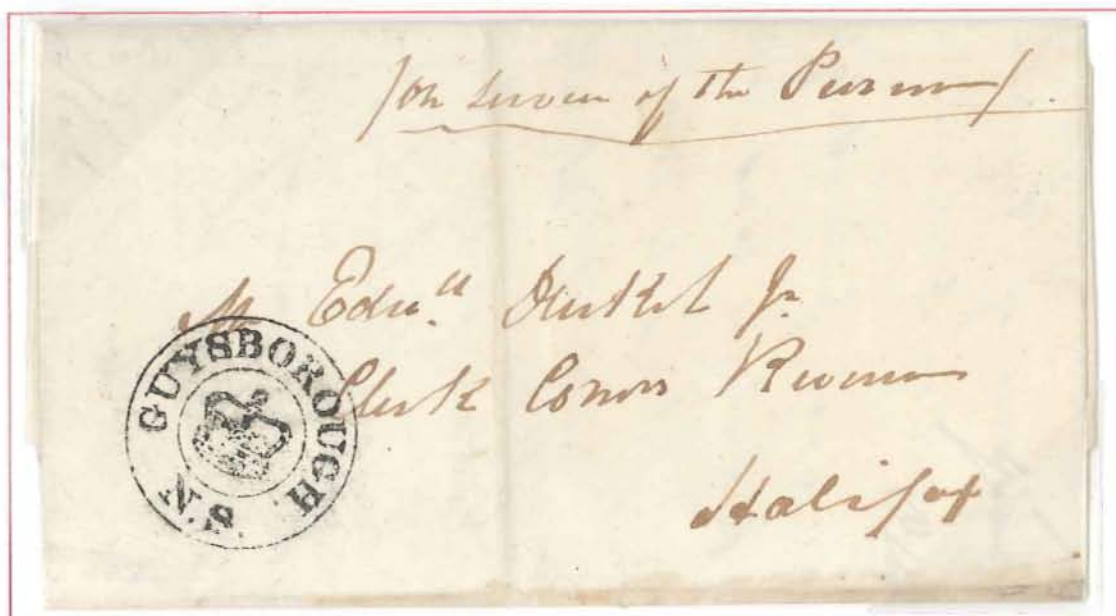 on service of the Revenue
Mr Edwd Jr
Clerk Comrs Revenue
Halifax
GUYSBOROUGH.
N.S.